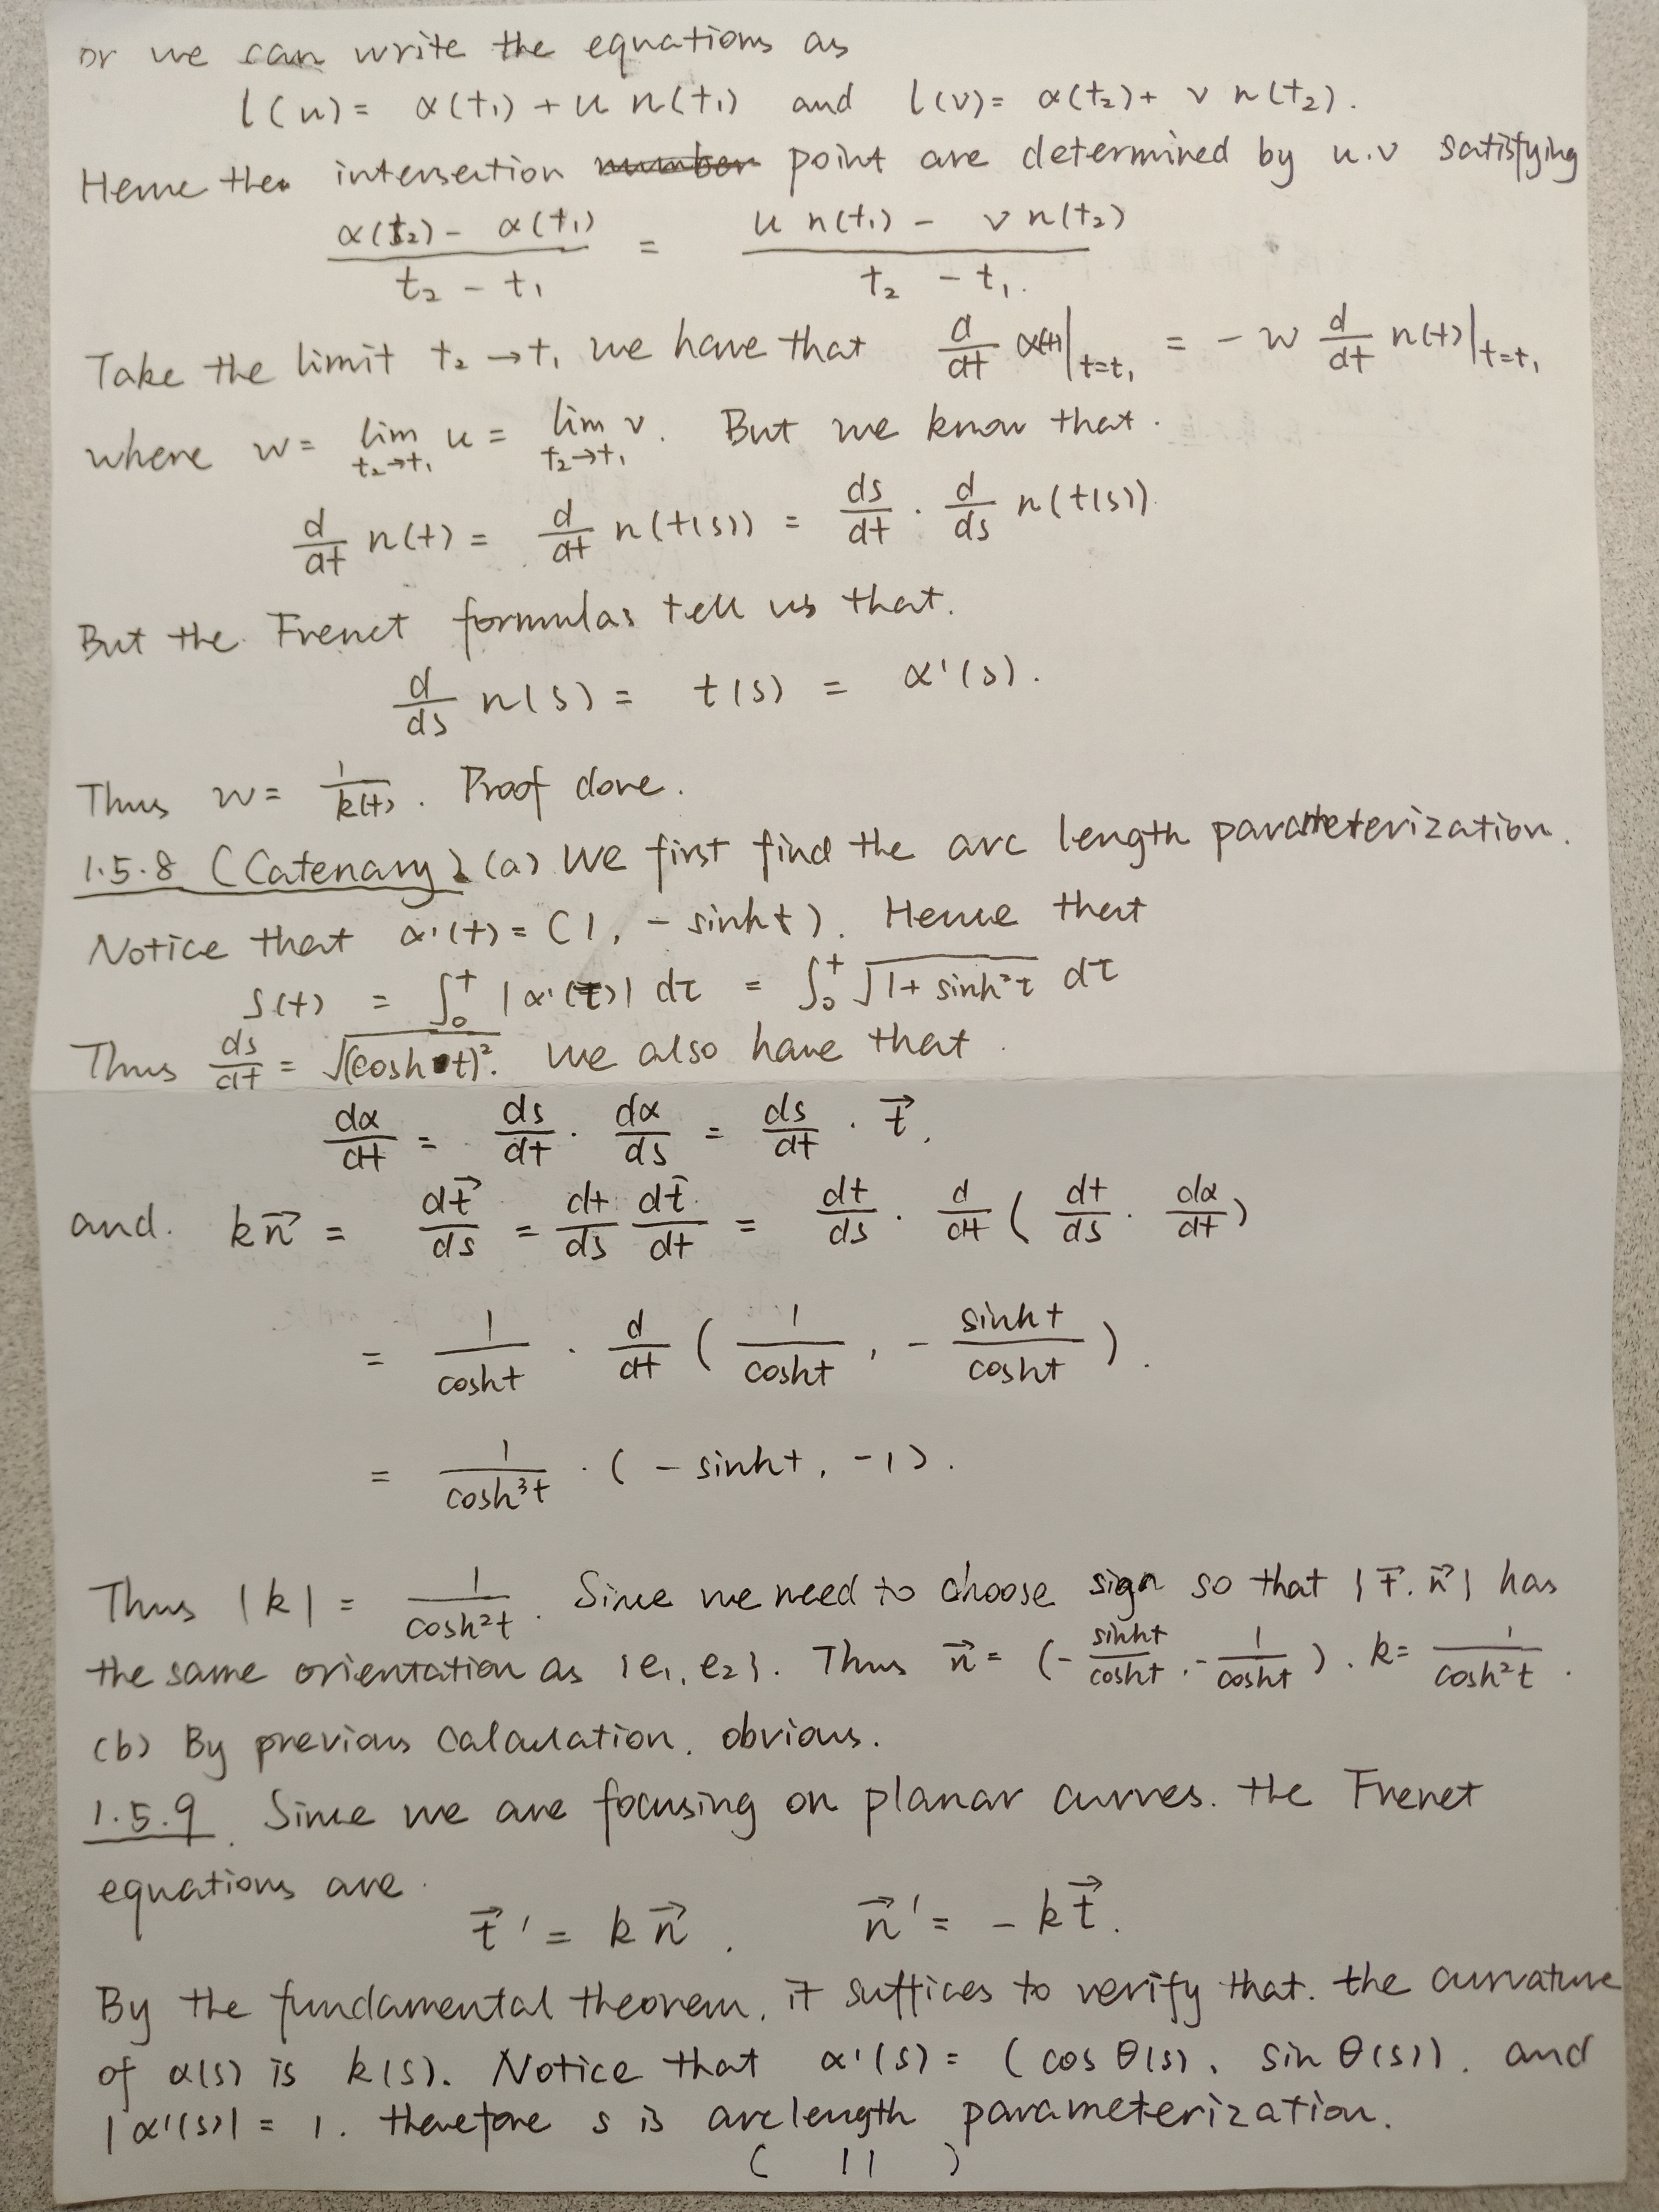 or we can write the equations as
l(u) = α(t₁) + u n(t₁) and l(v) = α(t₂) + v n(t₂).
Hence the intersection number point are determined by u.v satisfying
(α(t₂) - α(t₁))/(t₂ - t₁) = (u n(t₁) - v n(t₂))/(t₂ - t₁).
Take the limit t₂ → t₁ we have that d/dt α(t)|t=t₁ = - w d/dt n(t)|t=t₁
where w = lim t₂→t₁ u = lim t₂→t₁ v. But we know that.
d/dt n(t) = d/dt n(t(s)) = ds/dt · d/ds n(t(s)).
But the Frenet formulas tell us that.
d/ds n(s) = t(s) = α'(s).
Thus w = 1/k(t). Proof done.
1.5.8 (Catenary) (a) We first find the arc length parameterization.
Notice that α'(t) = (1, - sinht). Hence that
s(t) = ∫₀ᵗ |α'(τ)| dτ = ∫₀ᵗ √(1 + sinh²τ) dτ
Thus ds/dt = √(cosh t)². We also have that.
dα/dt = ds/dt · dα/ds = ds/dt · t⃗.
and. kn⃗ = dt⃗/ds = dt/ds dt⃗/dt = dt/ds · d/dt (dt/ds · dα/dt)
= 1/cosht · d/dt (1/cosht, - sinht/cosht).
= 1/cosh³t · (- sinht, -1).
Thus |k| = 1/cosh²t. Since we need to choose sign so that {t⃗, n⃗} has
the same orientation as {e₁, e₂}. Thus n⃗ = (- sinht/cosht, - 1/cosht). k = 1/cosh²t.
(b) By previous calculation, obvious.
1.5.9. Since we are focusing on planar curves. the Frenet
equations are.
t⃗' = kn⃗. n⃗' = - kt⃗.
By the fundamental theorem, it suffices to verify that. the curvature
of α(s) is k(s). Notice that α'(s) = (cos θ(s), sin θ(s)). and
|α'(s)| = 1. therefore s is arclength parameterization.
( 11 )